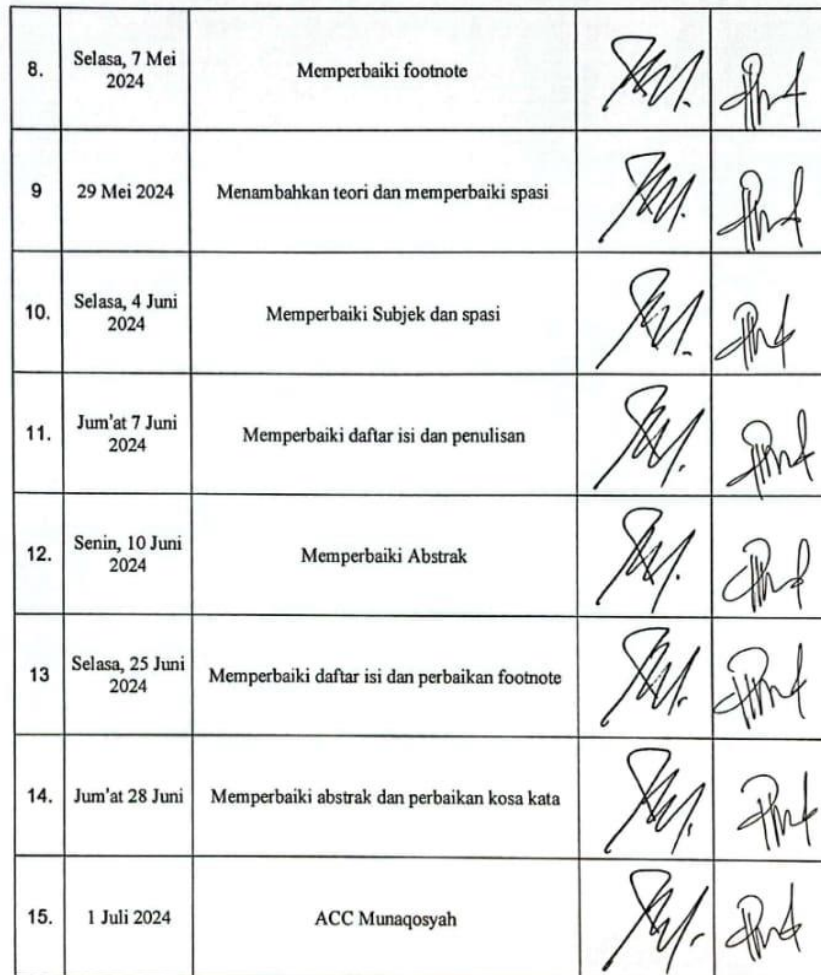 8.
Selasa, 7 Mei
2024
Memperbaiki footnote
9
29 Mei 2024
Menambahkan teori dan memperbaiki spasi
10.
Selasa, 4 Juni
2024
Memperbaiki Subjek dan spasi
11.
Jum'at 7 Juni
2024
Memperbaiki daftar isi dan penulisan
12.
Senin, 10 Juni
2024
Memperbaiki Abstrak
13
Selasa, 25 Juni
2024
Memperbaiki daftar isi dan perbaikan footnote
14.
Jum'at 28 Juni
Memperbaiki abstrak dan perbaikan kosa kata
15.
1 Juli 2024
ACC Munaqosyah